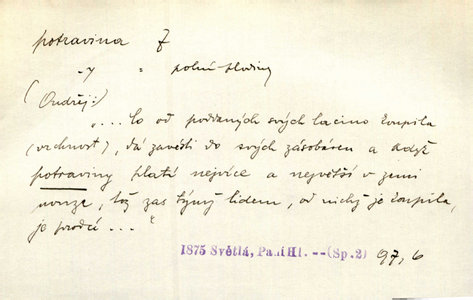 potravina ž
-y = polní plodiny
(Ondřej:)
"... Co od poddaných svých lacino koupila
(vrchnost), dá zavésti do svých zásobáren a když
potraviny platí nejvíce a největší v zemi
nouze, týž zas týmž lidem, od nichž je koupila,
je prodá ..."
1875 Světlá, Paní Hl. --(Sp.2) 97,6